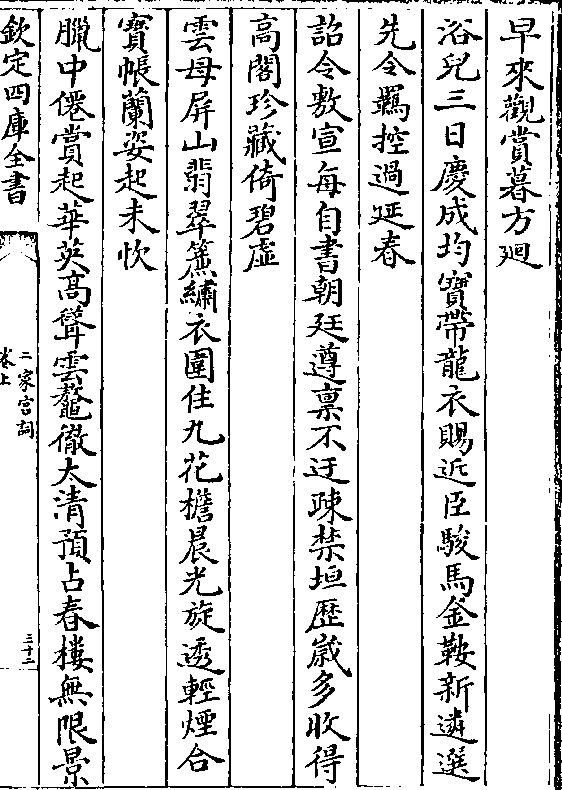 早來觀賞暮方廻
浴兒三日慶成均寳帶龍衣賜近臣駿馬金鞍新遴選
先令羈控過延春
詔令敷宣每自書朝廷遵稟不迂疎禁垣歴歲多收得
高閣珍藏倚碧虛
雲母屏山翡翠簾繡衣圍住九花檐晨光旋透輕煙合
寶帳蘭姿起未忺
臘中僊賞起華英高聳雲鼇徹太清預占春樓無限景
欽定四庫全書
二家宮詞
卷上
三十二